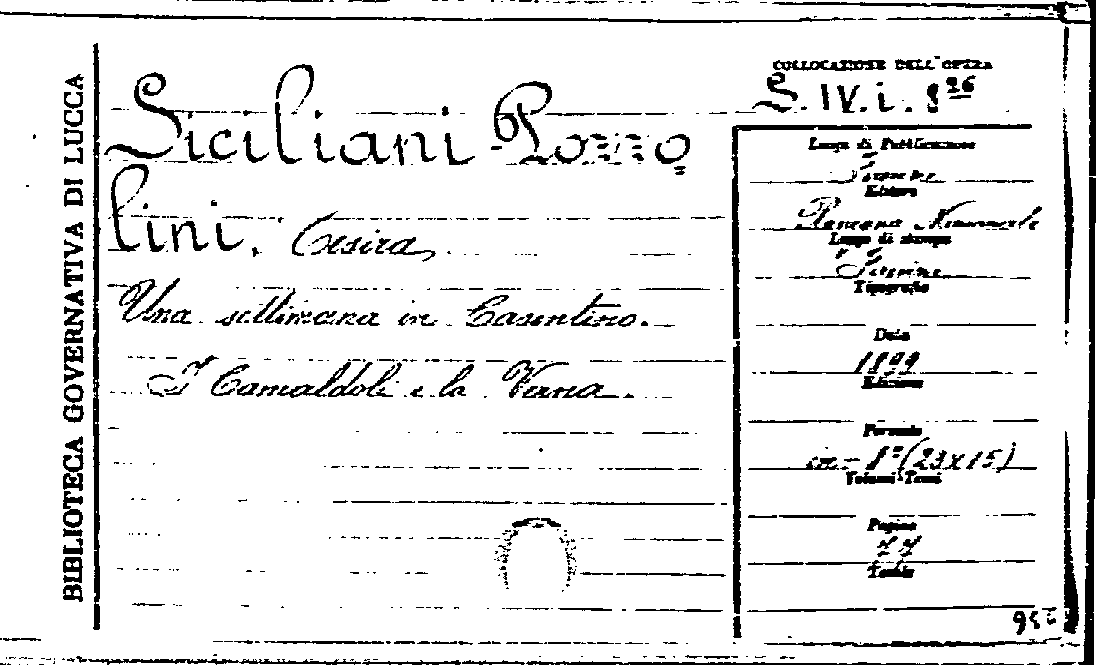 BIBLIOTECA GOVERNATIVA DI LUCCA
COLLOCAZIONE DELL' OPERA
S. IV. i. 8 26
Siciliani-Pozzo=
lini, Cesira
Una settimana in Casentino.
I Camaldoli e la Verna.
Luogo di Pubblicazione
Firenze
Editore
Rassegna Nazionale
Luogo di stampa
Firenze
Tipografia
Data
1899
Edizione
Formato
in-8° (23x15)
Volumi-Tomi
Pagine
Tavole